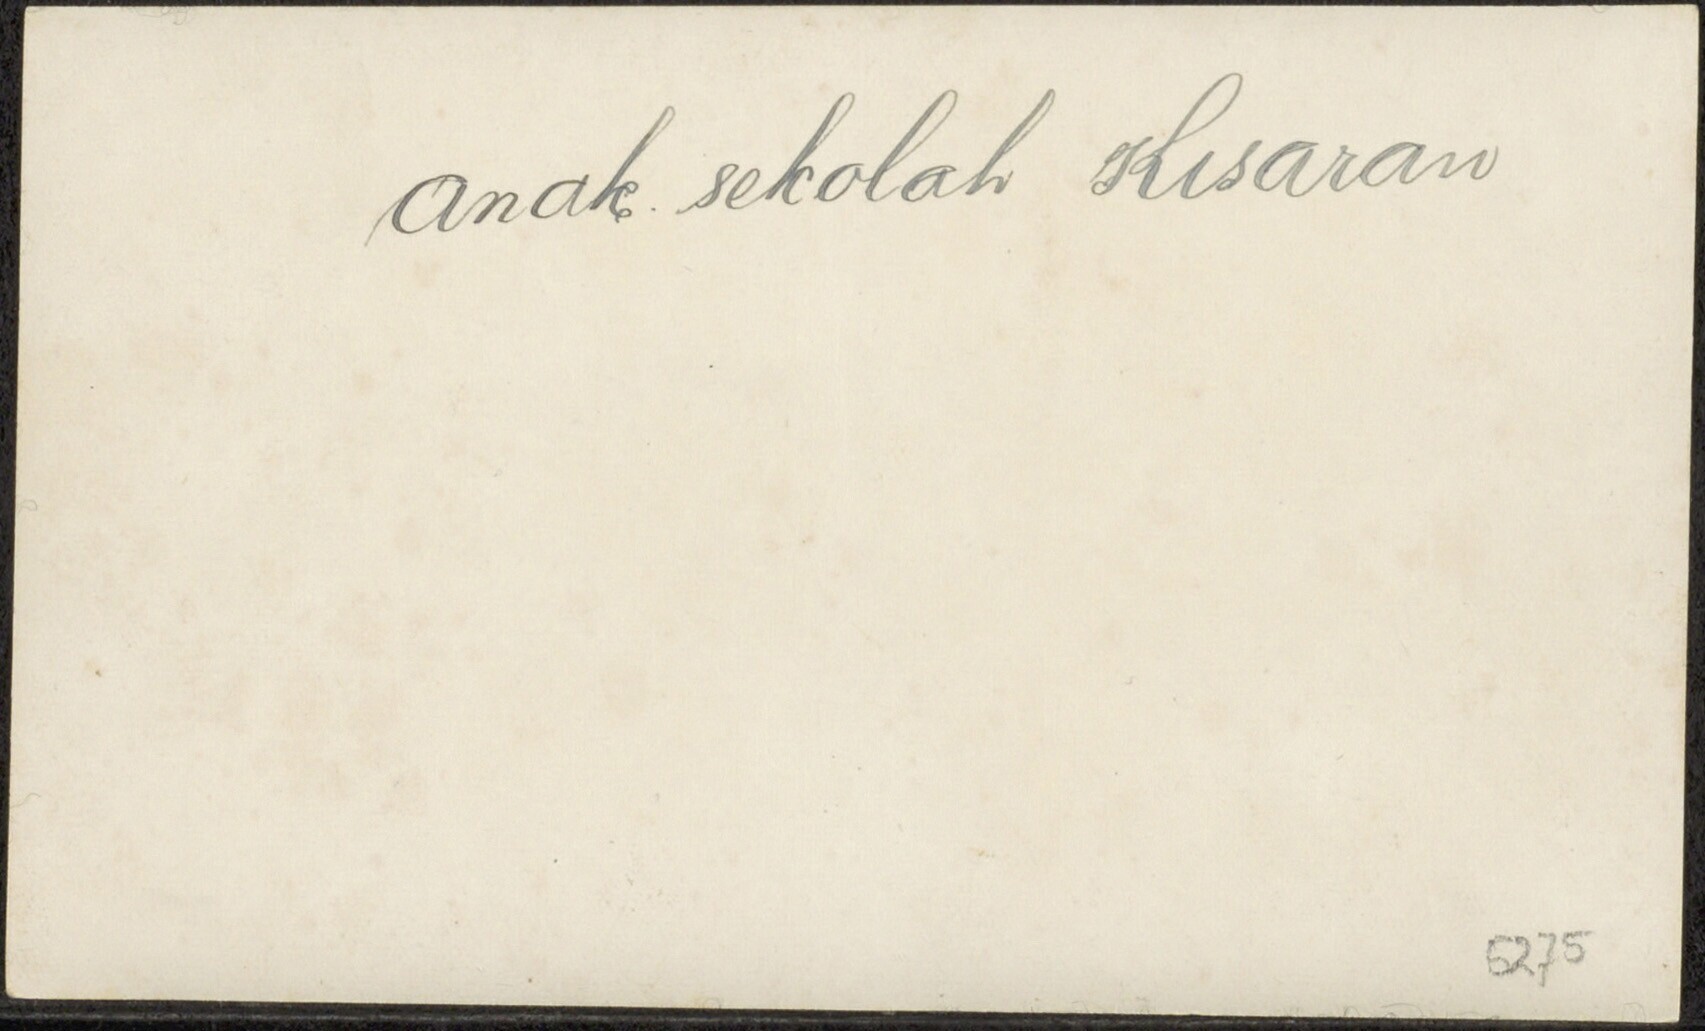 anak sekolah Kisaran
5275